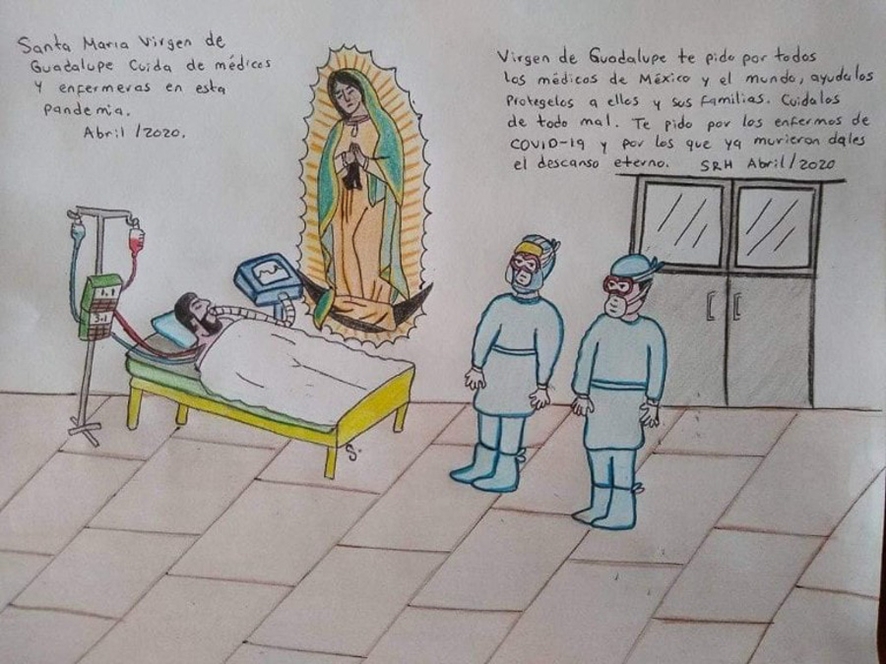 Santa Maria Virgen de
Guadalupe Cuida de médicos
y enfermeras en esta
pandemia.
Abril /2020.
Virgen de Guadalupe te pido por todos
los médicos de México y el mundo, ayudalos
Protegelos a ellos y sus familias. Cuidalos
de todo mal. Te pido por los enfermos de
COVID-19 y por los que ya murieron dales
el descanso eterno. SRH Abril/2020
S.